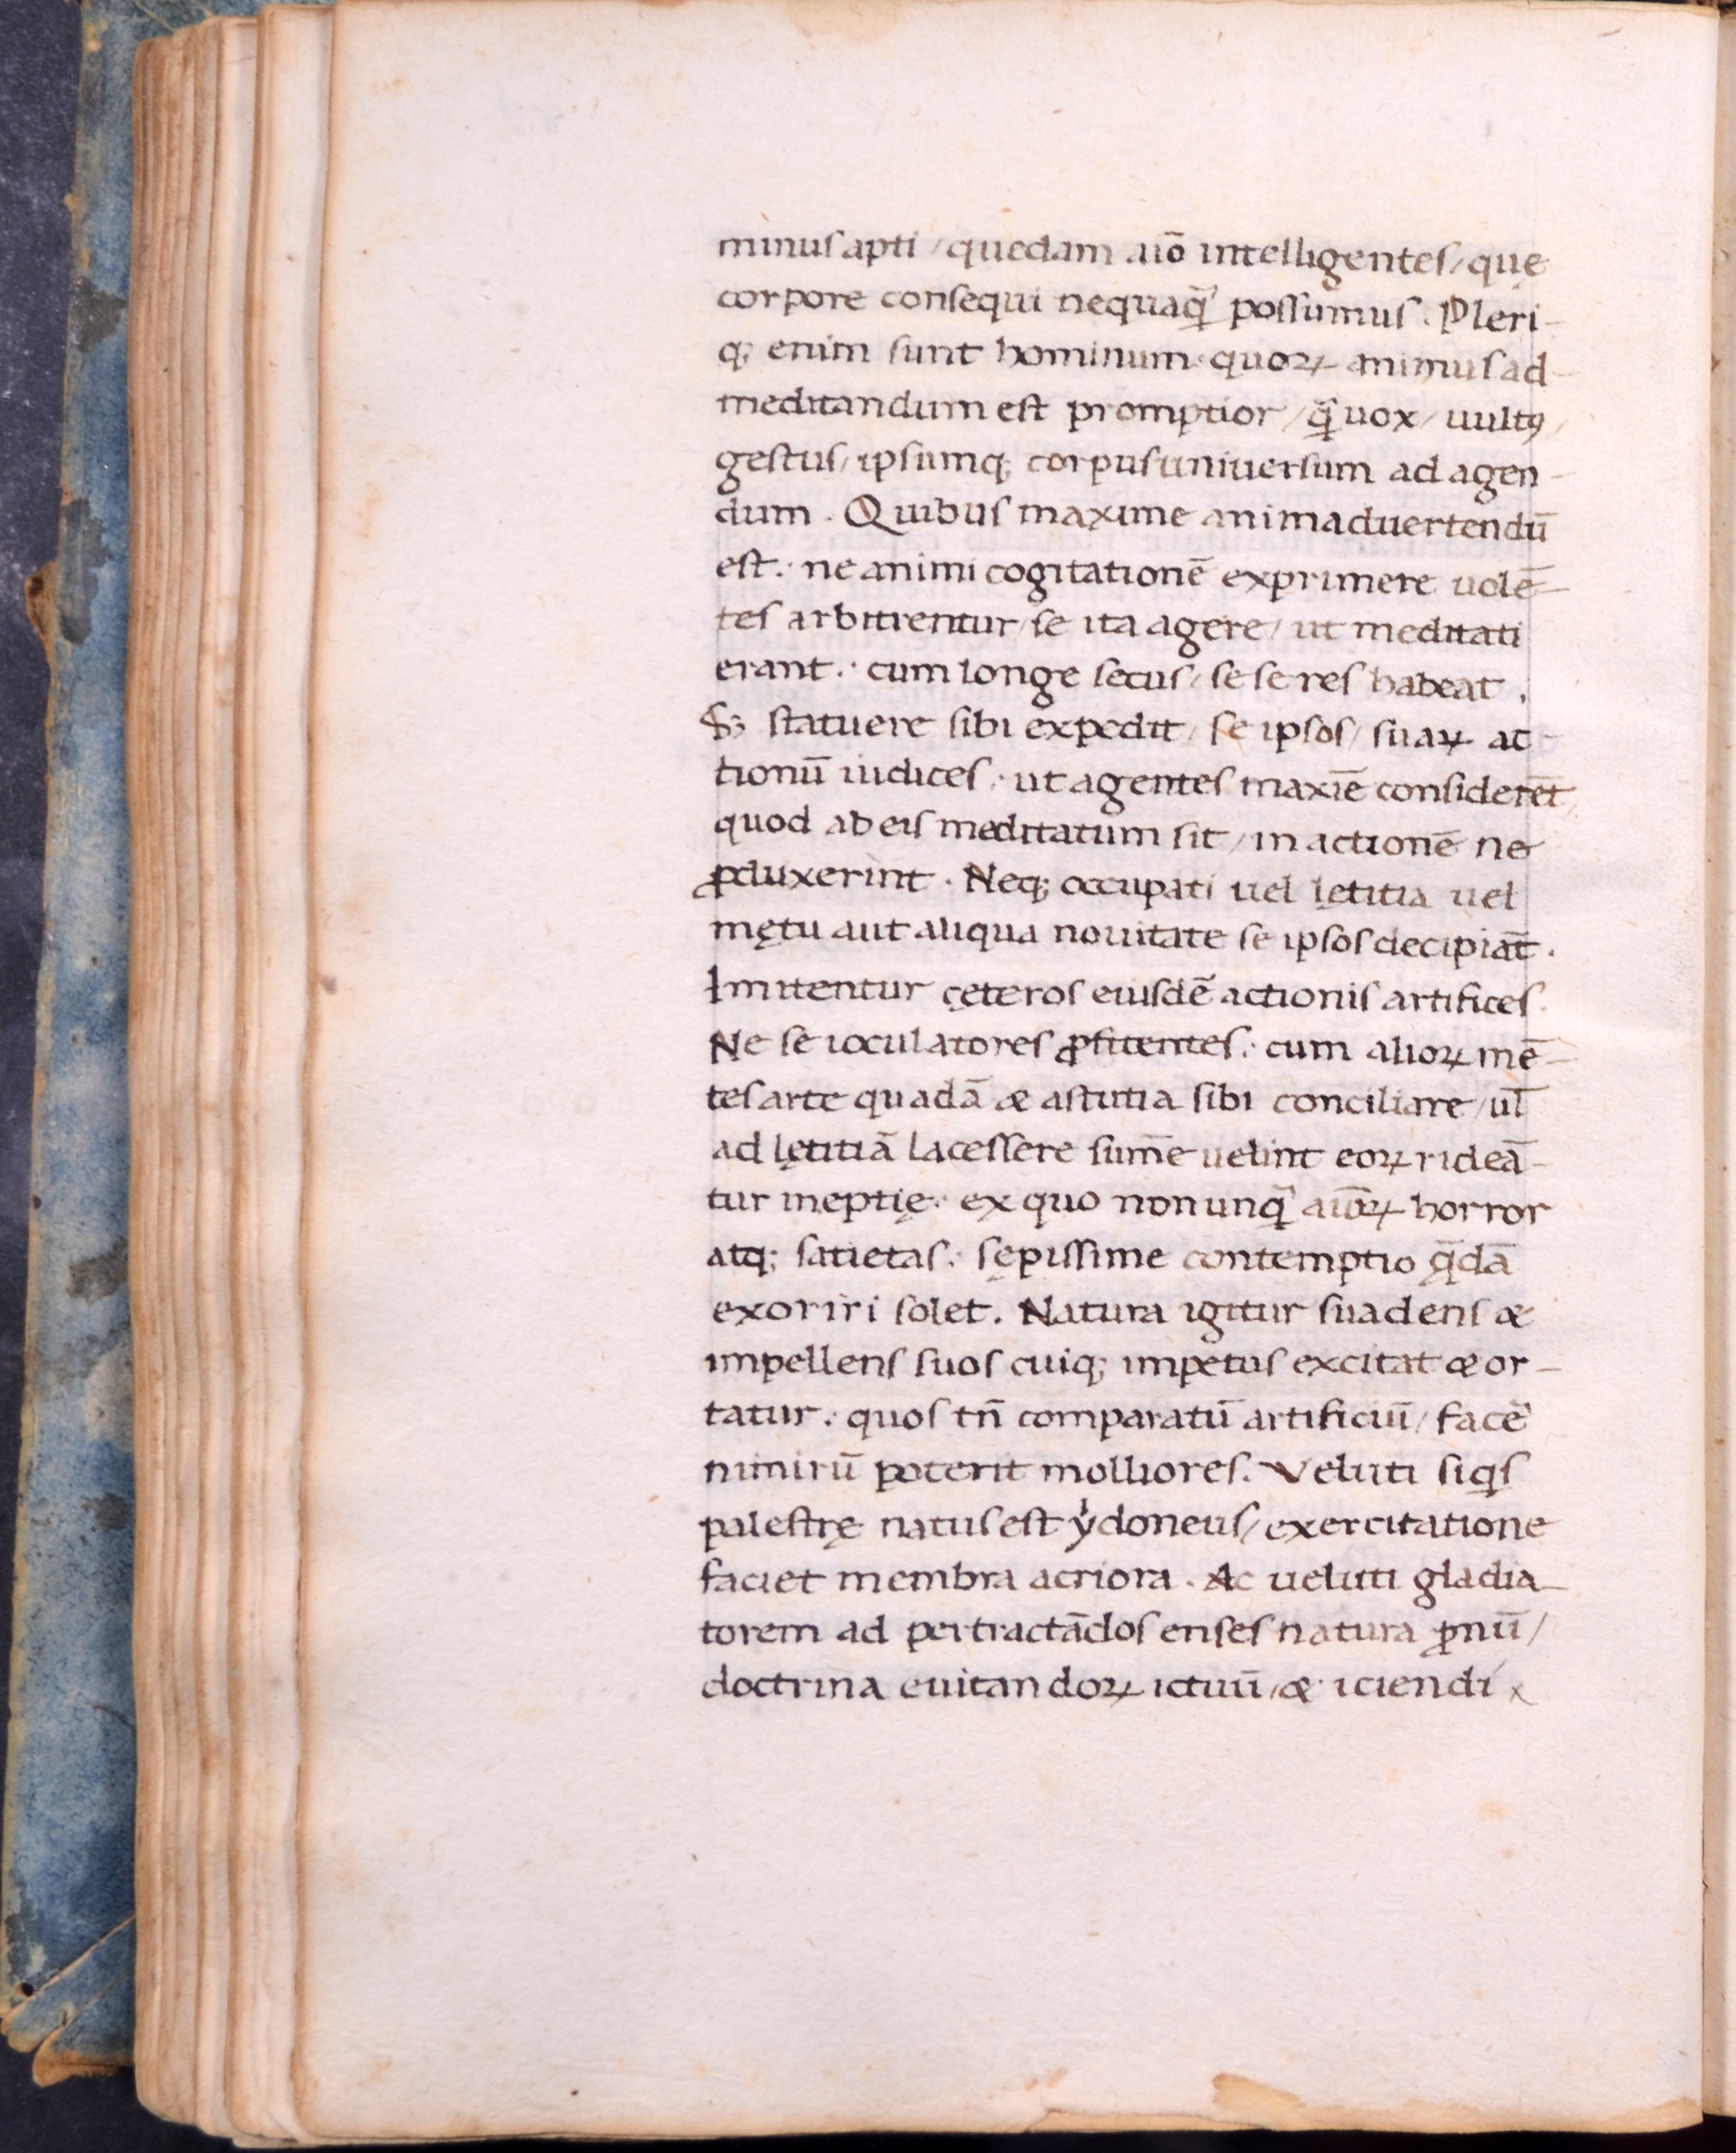 minus apti / quedam aīo intelligentes / quę
corpore consequi nequaq̃ possumus. Pleri-
q; enim sunt hominum: quoꝝ animus ad-
meditandum est promptior / q̃ uox / uultꝰ /
gestus / ipsumq; corpus uniuersum ad agen-
dum. Quibus maxime animaduertendū
est: ne animi cogitationē exprimere uolē-
tes arbitrentur / se ita agere / ut meditati
erant: cum longe secus / se se res habeat.
Sꝫ statuere sibi expedit / se ipsos / suaꝝ ac-
tionū iudices: ut agentes maxīe considerēt /
quod ab eis meditatum sit / in actionē ne
ꝓduxerint. Neq; occupati uel lętitia uel
mętu aut aliqua nouitate se ipsos decipiāt.
Imitentur cęteros eiusdē actionis artifices.
Ne se ioculatores ꝓfitentes: cum alioꝝ mē-
tes arte quadā & astutia sibi conciliare / ul̄
ad lętitiā lacessere sum̄e uelint eoꝝ rideā-
tur ineptię: ex quo non unq̃ aīoꝝ horror
atq; satietas: sępissime contemptio q̄dā
exoriri solet. Natura igitur suadens &
impellens suos cuiq; impetus excitat & or-
tatur: quos tn̄ comparatū artificiū / facē
nimirū poterit molliores. Veluti siq̇s
palestrę natus est ẏdoneus / exercitatione
faciet membra acriora. Ac ueluti gladia-
torem ad pertractādos enses natura ꝓnū /
doctrina euitandoꝝ ictuū / & iciendi